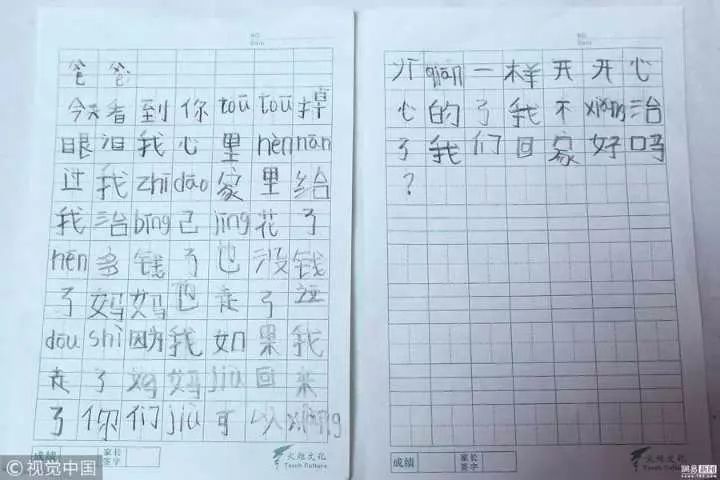 NO.
Date
爸爸
今天看到你toūtoū掉
眼泪我心里hěnnān
过我zhīdāo家里给
我治bìng己jīng花了
hěn多钱了也没钱
了妈妈也走了这
doūshì因为我如果我
走了妈妈jiù回来
了你们jiù可以xiàng
成绩
家长签字
火炬文化
Torch Culture
以qiān一样开开心
心的了我不xiǎng治
了我们回家好吗
?
成绩
家长签字
火炬文化
Torch Culture
©视觉中国
网易新闻